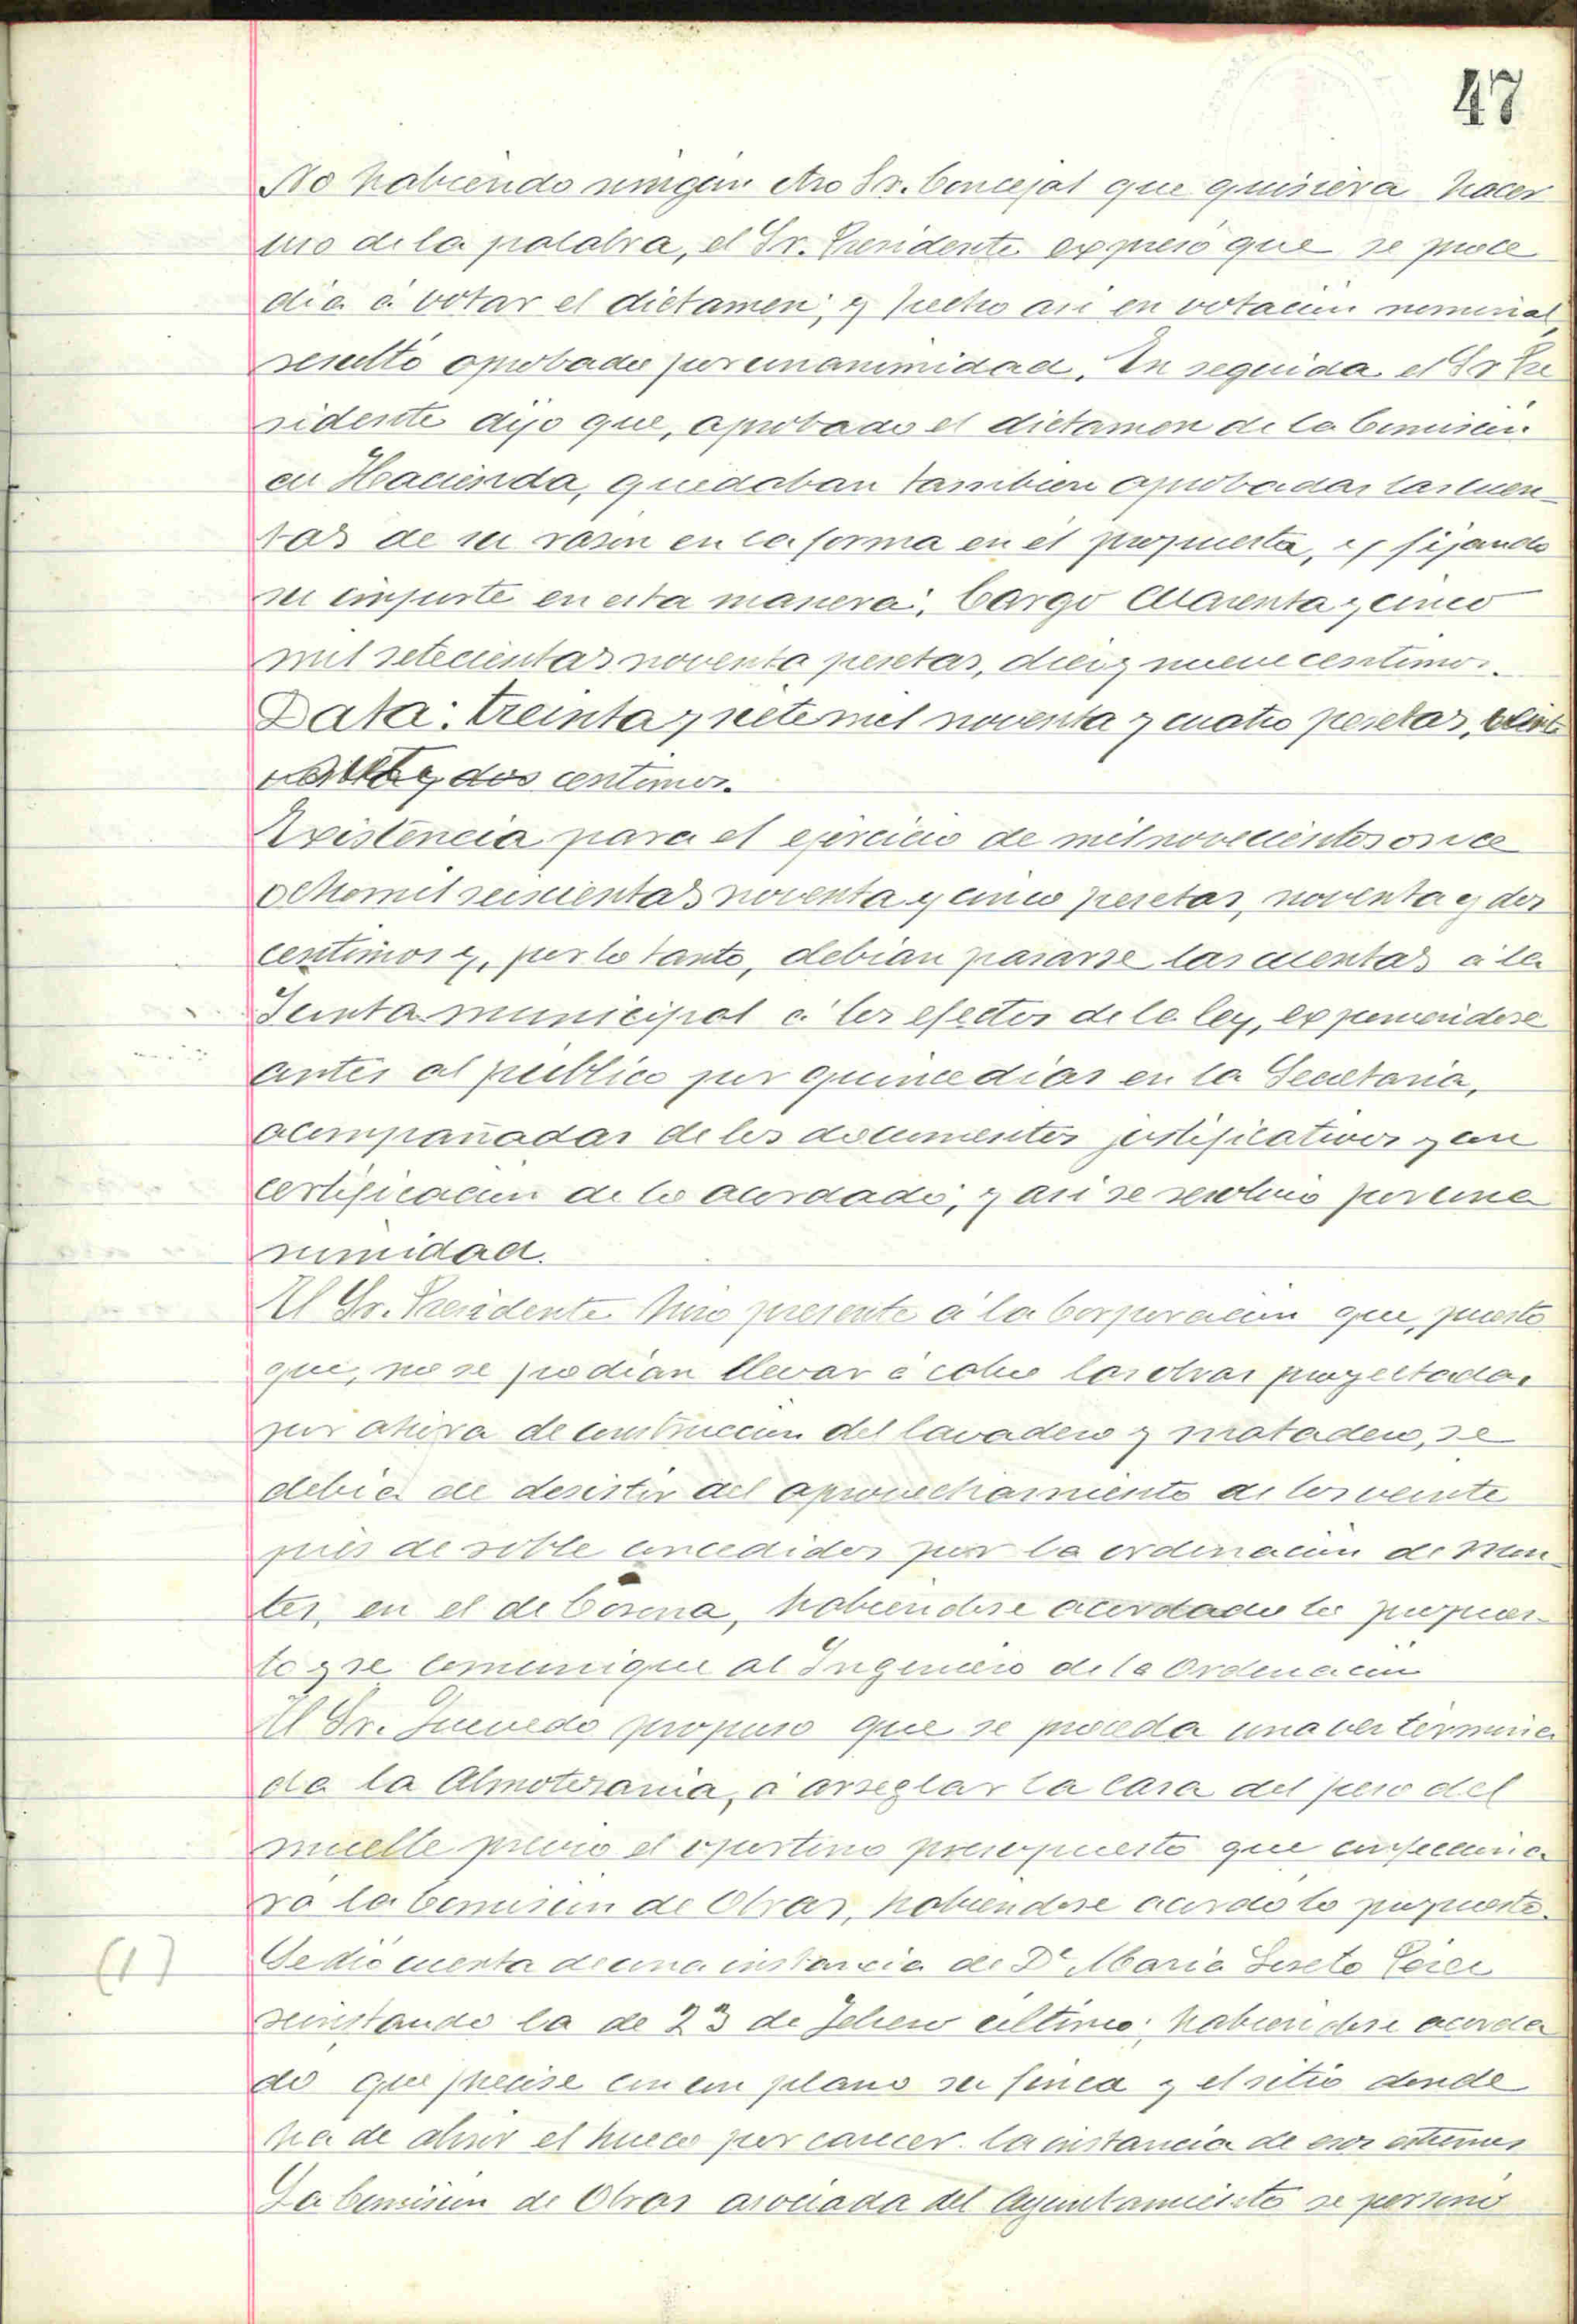 47
No habiendo ningún otro Sr. Concejal que quisiera hacer
uso de la palabra, el Sr. Presidente expresó que se proce
dia á votar el dictamen; y hecho asi en votacion nominal,
resultó aprobado por unanimidad. En seguida el Sr Pre
sidente dijo que, aprobado el dictamen de la Comisión
de Hacienda, quedaban tambien aprobadas las cuen-
tas de su rason en la forma en él propuesta, y fijando
su importe en esta manera: Cargo cuarenta y cinco
mil setecientas noventa pesetas, diez y nueve centimos.
Data: treinta y siete mil noventa y cuatro pesetas, veinte
y dos centimos.
Existencia para el ejercicio de mil novecientos once
ocho mil seiscientas noventa y cinco pesetas, noventa y dos
centimos y, por lo tanto, debian pasarse las cuentas á la
Junta municipal á los efectos de la ley, exponiendose
antes al publico por quince dias en la Secretaria,
acompañadas de los documentos justificativos y con
certificacion de lo acordado; y asi se resolvió por una
nimidad.
El Sr. Presidente hizo presente á la Corporacion que, puesto
que, no se podian llevar á cabo las obras proyectadas
por ahora de construccion del lavadero y matadero, se
debia de desistir del aprovechamiento de los veinte
pies de roble concedidos por la ordenacion de Mon-
tes, en el de Corona, habiendose acordado lo propues-
to y se comunique al Ingeniero de la Ordenacion
El Sr. Quevedo propuso que se proceda una vez termina
da la Almotesania, á arreglar la casa del peso del
muelle previo el oportuno presupuesto que confecciona
rá la Comision de Obras, habiendose acordó lo propuesto.
(1) Se dió cuenta de una instancia de Dª Maria Loreto Perez
reinstando la de 23 de Febrero ultimo; habiendose acorda
do que precise con un plano su finca y el sitio donde
ha de abrir el hueco por carecer la instancia de esos extremos
La Comision de Obras asociada del Ayuntamiento se personó